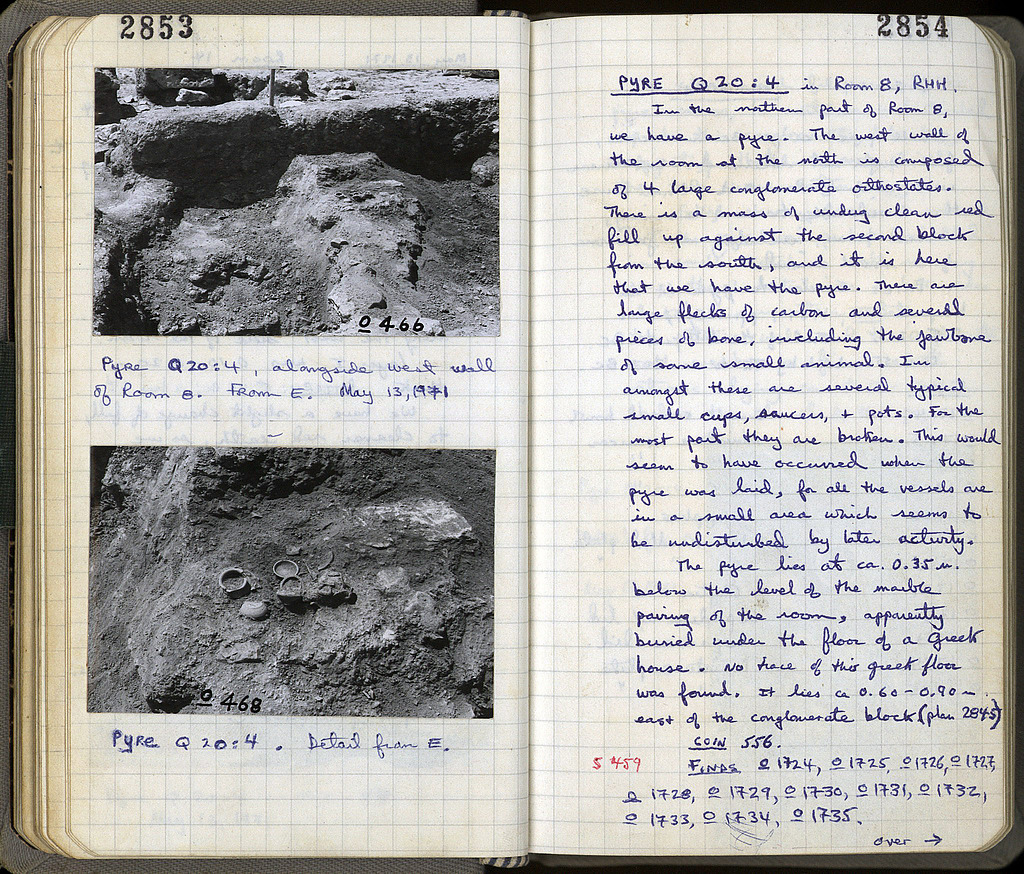 2853
O 466
Pyre Q 20:4, alongside west wall
of Room 8. From E. May 13, 1971
O 468
Pyre Q 20:4. Detail from E.
2854
PYRE Q 20:4 in Room 8, RHH.
In the northern part of Room 8,
we have a pyre. The west wall of
the room at the north is composed
of 4 large conglomerate orthostates.
There is a mass of undug clean red
fill up against the second block
from the south, and it is here
that we have the pyre. There are
large flecks of carbon and several
pieces of bone, including the jawbone
of some small animal. In
amongst these are several typical
small cups, saucers, + pots. For the
most part they are broken. This would
seem to have occurred when the
pyre was laid, for all the vessels are
in a small area which seems to
be undisturbed by later activity.
The pyre lies at ca. 0.35 m.
below the level of the marble
paving of the room, apparently
buried under the floor of a Greek
house. No trace of this greek floor
was found. It lies ca 0.60-0.90 m.
east of the conglomerate block (plan 2845)
COIN 556.
S 459
FINDS O 1724, O 1725, O 1726, O 1727,
O 1728, O 1729, O 1730, O 1731, O 1732,
O 1733, O 1734, O 1735.
over →